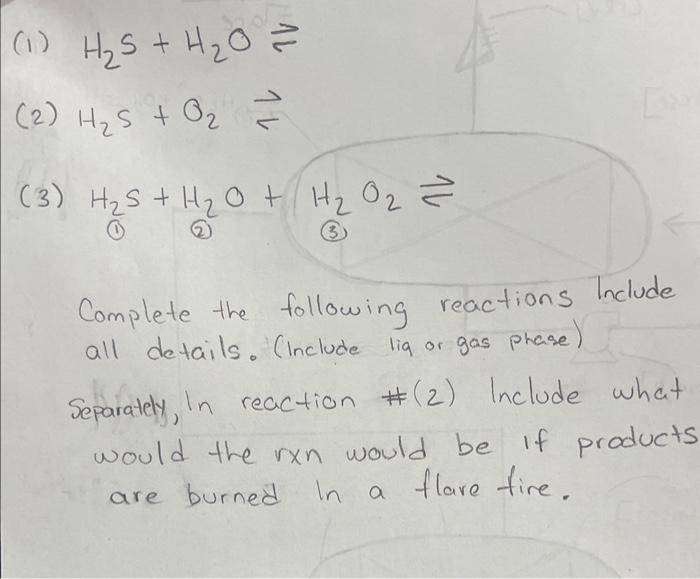 (1) H₂S + H₂O ⇌
(2) H₂S + O₂ ⇌
(3) H₂S + H₂O + H₂O₂ ⇌
① ② ③
Complete the following reactions Include
all details. (Include liq or gas phase)
Separately, In reaction #(2) Include what
would the rxn would be if products
are burned In a flare fire.